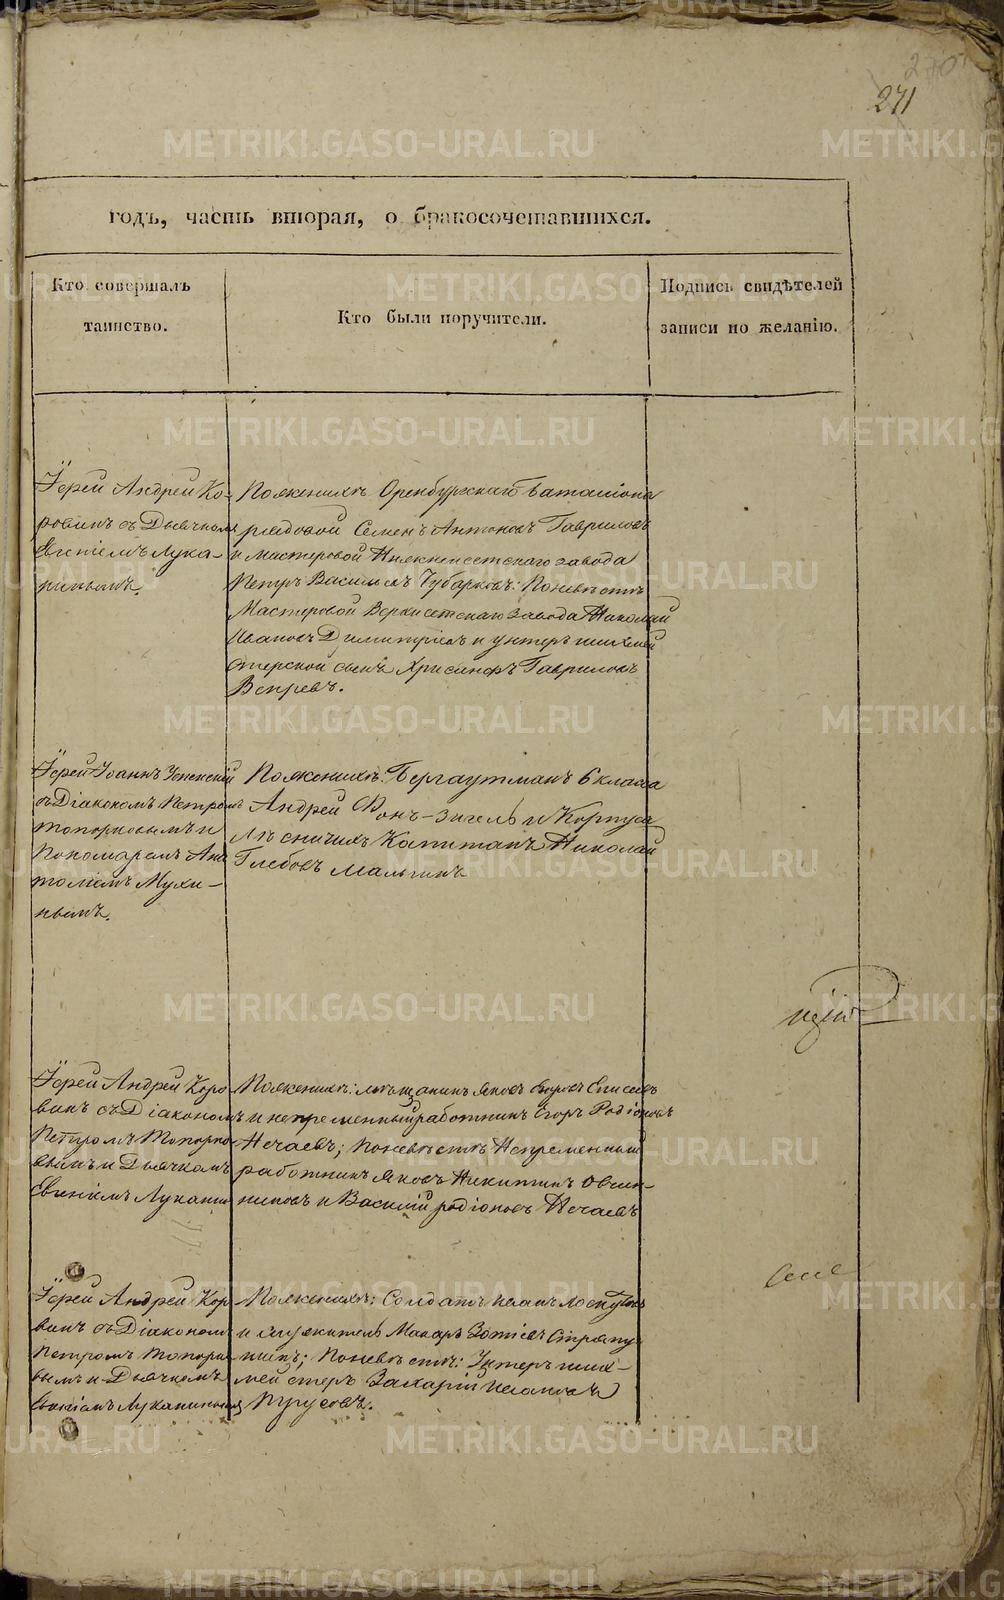 270
271
годъ, часть вторая, о бракосочетавшихся.
Кто совершалъ
таинство.
Кто были поручители.
Подпись свидѣтелей
записи по желанію.
Іерей Андрей Ко-
ровинъ съ Дьячкомъ
Евгніемъ Лука-
нинымъ.
По женихѣ Оренбургскаго баталіона
рядовой Семенъ Антоновъ Гавриловъ
и мастеровой Нижнеисетскаго завода
Петръ Васильевъ Чубарковъ. По невѣстѣ
Мастеровой Верхисетскаго завода Николай
Ивановъ Димитріевъ и унтеръ шихтмей
стерской сынъ Хрисанфъ Гавриловъ
Вепревъ.
Іерей Іоаннъ Успенскій
съ Діакономъ Петромъ
Топорковымъ и
Пономаремъ Ана
толіемъ Мухи-
нымъ.
По женихѣ: Бергауптманъ 6 класса
Андрей Фонъ-Зигель и Корпуса
Лѣсничихъ Капитанъ Николай
Глебовъ Мальгинъ
Іерей Андрей Коро
винъ съ Діакономъ
Петромъ Топорко
вымъ и Дьячкомъ
Евгніемъ Луканин
По женихѣ: мѣщанинъ Яковъ Елисеевъ
и непременный работникъ Егоръ Родіоновъ
Нечаевъ; По невѣстѣ Непременный
работникъ Яковъ Никитинъ Овчин-
никовъ и Василій Родіоновъ Нечаевъ
Іерей Андрей Кор
винъ съ Діакономъ
Петромъ Топорк
вымъ и Дьячкомъ
Евгніемъ Луканинымъ
По женихѣ: Солдатъ Иванъ Лоскутовъ
и служитель Макаръ Зотіевъ Стряпу
нинъ; По невѣстѣ: Унтеръ ших-
мейстеръ Захарій Ивановъ
Пугуевъ.
METRIKI.GASO-URAL.RU